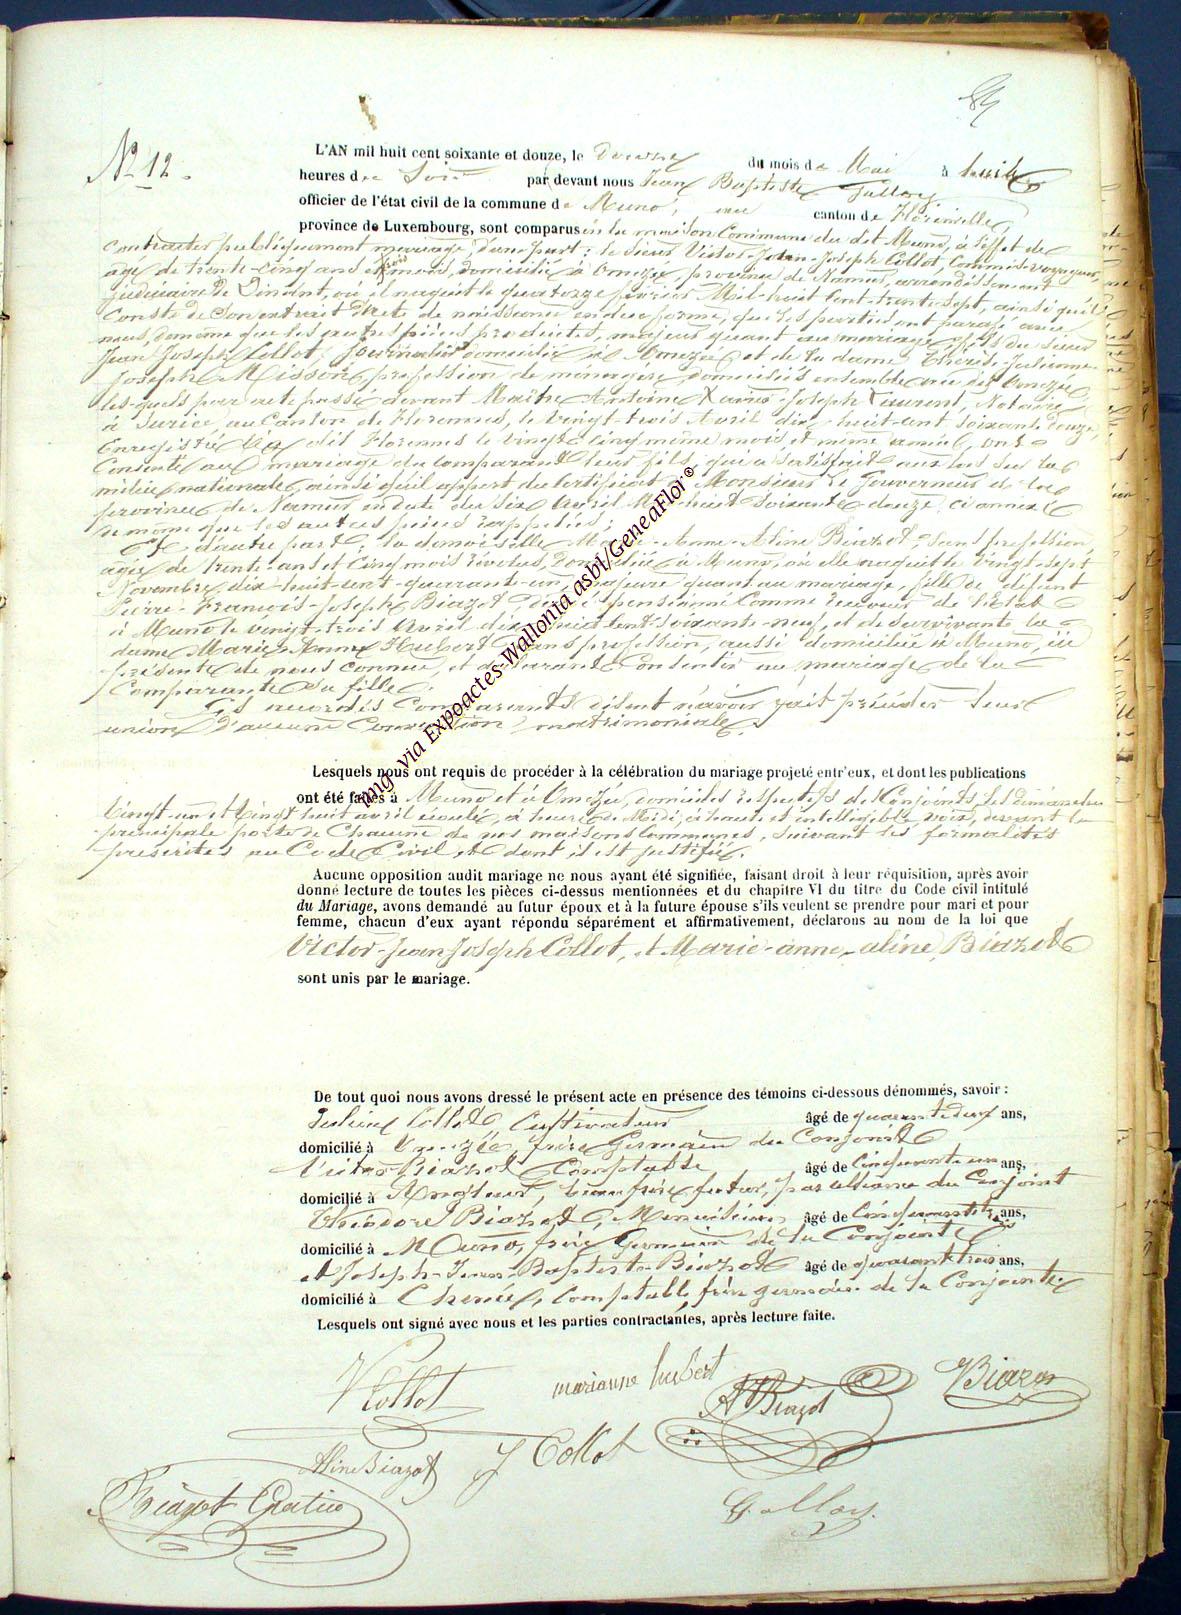 Nº 12.
L'AN mil huit cent soixante et douze, le du mois de Mai à huit
heures du Soir par devant nous Jean Baptiste
officier de l'état civil de la commune de Muno, canton de Florenville,
province de Luxembourg, sont comparus en la maison Commune du dit Muno, à l'effet de
Contracter publiquement mariage, d'une part : le Sieur Victor-Jean-Joseph Collot, Commis-voyageur,
âgé de trente-cinq ans et mois, domicilié à Omezée, province de Namur, arrondissement
judiciaire de Dinant, où il naquit le quatorze février Mil-huit-cent-trente-sept, ainsi qu'il
Conste de Son extrait d'acte de naissance en due forme, que les parties ont paraphé avec
nous, de même que les autres pièces produites, majeur quant au mariage, fils du Sieur
Jean Joseph Collot, Journalier domicilié à Omezée et de la dame Thérèse, Julienne
Joseph Misson, profession de ménagère, domiciliés ensemble au dit Omezée
lesquels par acte passé devant Maître Antoine Xavier Joseph Laurent, Notaire
à Surice, au Canton de Florennes, le vingt-trois Avril dix-huit-cent soixante douze,
Enregistré à Florennes le vingt cinq même mois et même année, ont
Consenti au mariage du comparant leur fils, qui a satisfait aux lois sur la
milice nationale, ainsi qu'il appert du Certificat de Monsieur le Gouverneur de la
province de Namur en date du Six Avril Mil huit Soixante-douze, ci annexé
de même que les autres pièces rappelées ;
Et d'autre part : la demoiselle Marie-Anne-Aline Biazot, Sans profession,
âgée de trente ans et Cinq mois révolus, Domiciliée à Muno, où elle naquit le Vingt-sept
Novembre dix-huit-cent-quarante-un, majeure quant au mariage, fille de défunt
Pierre-François-Joseph Biazot, pensionné Comme receveur de l'Etat
à Muno le vingt-trois Avril dix-huit-cent-soixante-neuf, et de survivante la
dame Marie-Anne Hubert Sans profession, aussi domiciliée à Muno, ici
présente de nous connue, et déclarant Consentir au mariage de la
Comparante Sa fille.
Les Comparants disent n'avoir fait précéder leur
union d'aucune Convention matrimoniale.
Lesquels nous ont requis de procéder à la célébration du mariage projeté entr'eux, et dont les publications
ont été faites à Muno et à Omezée, domiciles respectifs des Conjoints, les dimanches
Vingt-un et Vingt huit avril écoulé, à heure de Midi, à haute et intelligible voix, devant la
principale porte de Chacune de nos maisons Communes, Suivant les formalités
prescrites au Code Civil et dont il est justifié.
Aucune opposition audit mariage ne nous ayant été signifiée, faisant droit à leur réquisition, après avoir
donné lecture de toutes les pièces ci-dessus mentionnées et du chapitre VI du titre du Code civil intitulé
du Mariage, avons demandé au futur époux et à la future épouse s'ils veulent se prendre pour mari et pour
femme, chacun d'eux ayant répondu séparément et affirmativement, déclarons au nom de la loi que
Victor-Jean Joseph Collot, et Marie-anne-aline, Biazot
sont unis par le mariage.
De tout quoi nous avons dressé le présent acte en présence des témoins ci-dessous dénommés, savoir :
Collot, Cultivateur âgé de quarante deux ans,
domicilié à Omezée, frère Germain du Conjoint
Victor Biazot Comptable âgé de Cinquante un ans,
domicilié à Angleur, beau frère futur, par alliance du Conjoint
Théodore Biazot, Menuisier, âgé de Cinquante ans,
domicilié à Muno, frère Germain de la Conjointe
et Joseph-Jean-Baptiste Biazot âgé de quarante trois ans,
domicilié à Chenée, Comptable frère germain de la Conjointe.
Lesquels ont signé avec nous et les parties contractantes, après lecture faite.
V Collot marianne hubert Biazot VBiazot
Aline Biazot J Collot
Biazot
img via Expoactes-Wallonia asbl/GeneaFlor©